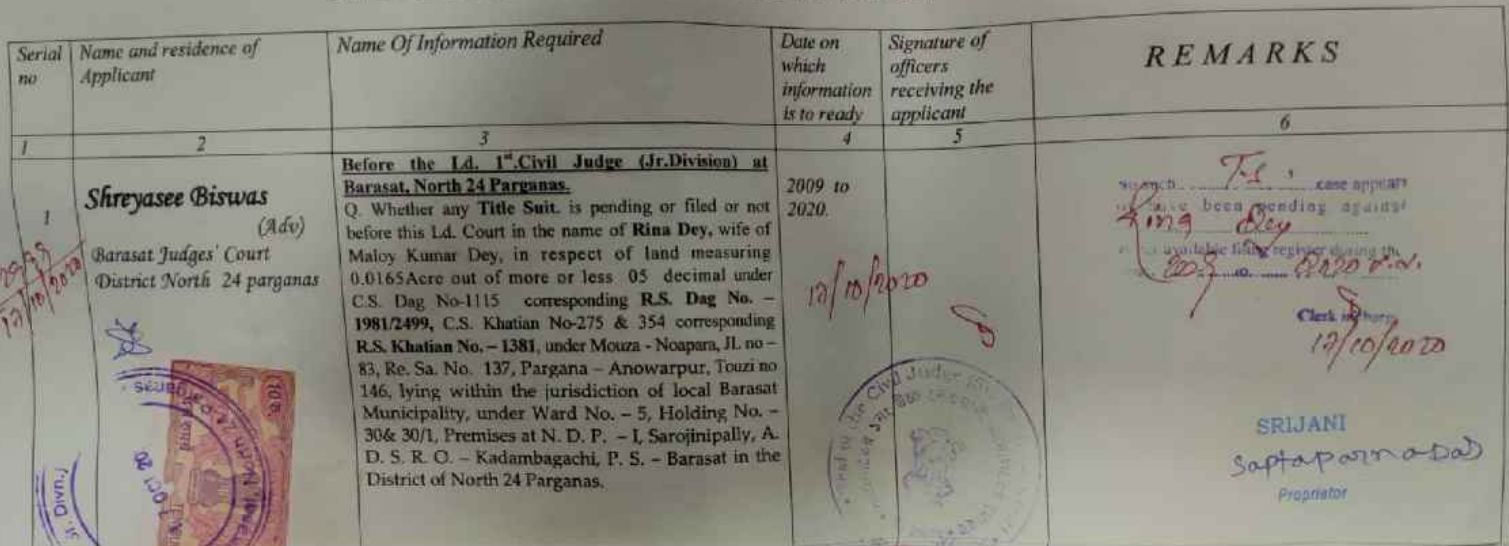 Serial no
Name and residence of Applicant
Name Of Information Required
Date on which information is to ready
Signature of officers receiving the applicant
REMARKS
1 2 3 4 5 6
1
Shreyasee Biswas
(Adv)
Barasat Judges' Court
District North 24 parganas
Before the Ld. 1st.Civil Judge (Jr.Division) at
Barasat, North 24 Parganas.
Q. Whether any Title Suit. is pending or filed or not
before this Ld. Court in the name of Rina Dey, wife of
Maloy Kumar Dey, in respect of land measuring
0.0165Acre out of more or less 05 decimal under
C.S. Dag No-1115 corresponding R.S. Dag No. –
1981/2499, C.S. Khatian No-275 & 354 corresponding
R.S. Khatian No. – 1381, under Mouza - Noapara, JL no –
83, Re. Sa. No. 137, Pargana – Anowarpur, Touzi no
146, lying within the jurisdiction of local Barasat
Municipality, under Ward No. – 5, Holding No. –
30& 30/1, Premises at N. D. P. – I, Sarojinipally, A.
D. S. R. O. – Kadambagachi, P. S. – Barasat in the
District of North 24 Parganas.
2009 to
2020.
12/10/2020
12/10/2020
T.S. case appears
been pending against
Dey
available filing register during the
to 2020
Clerk
12/10/2020
SRIJANI
Saptaparna Das
Proprietor